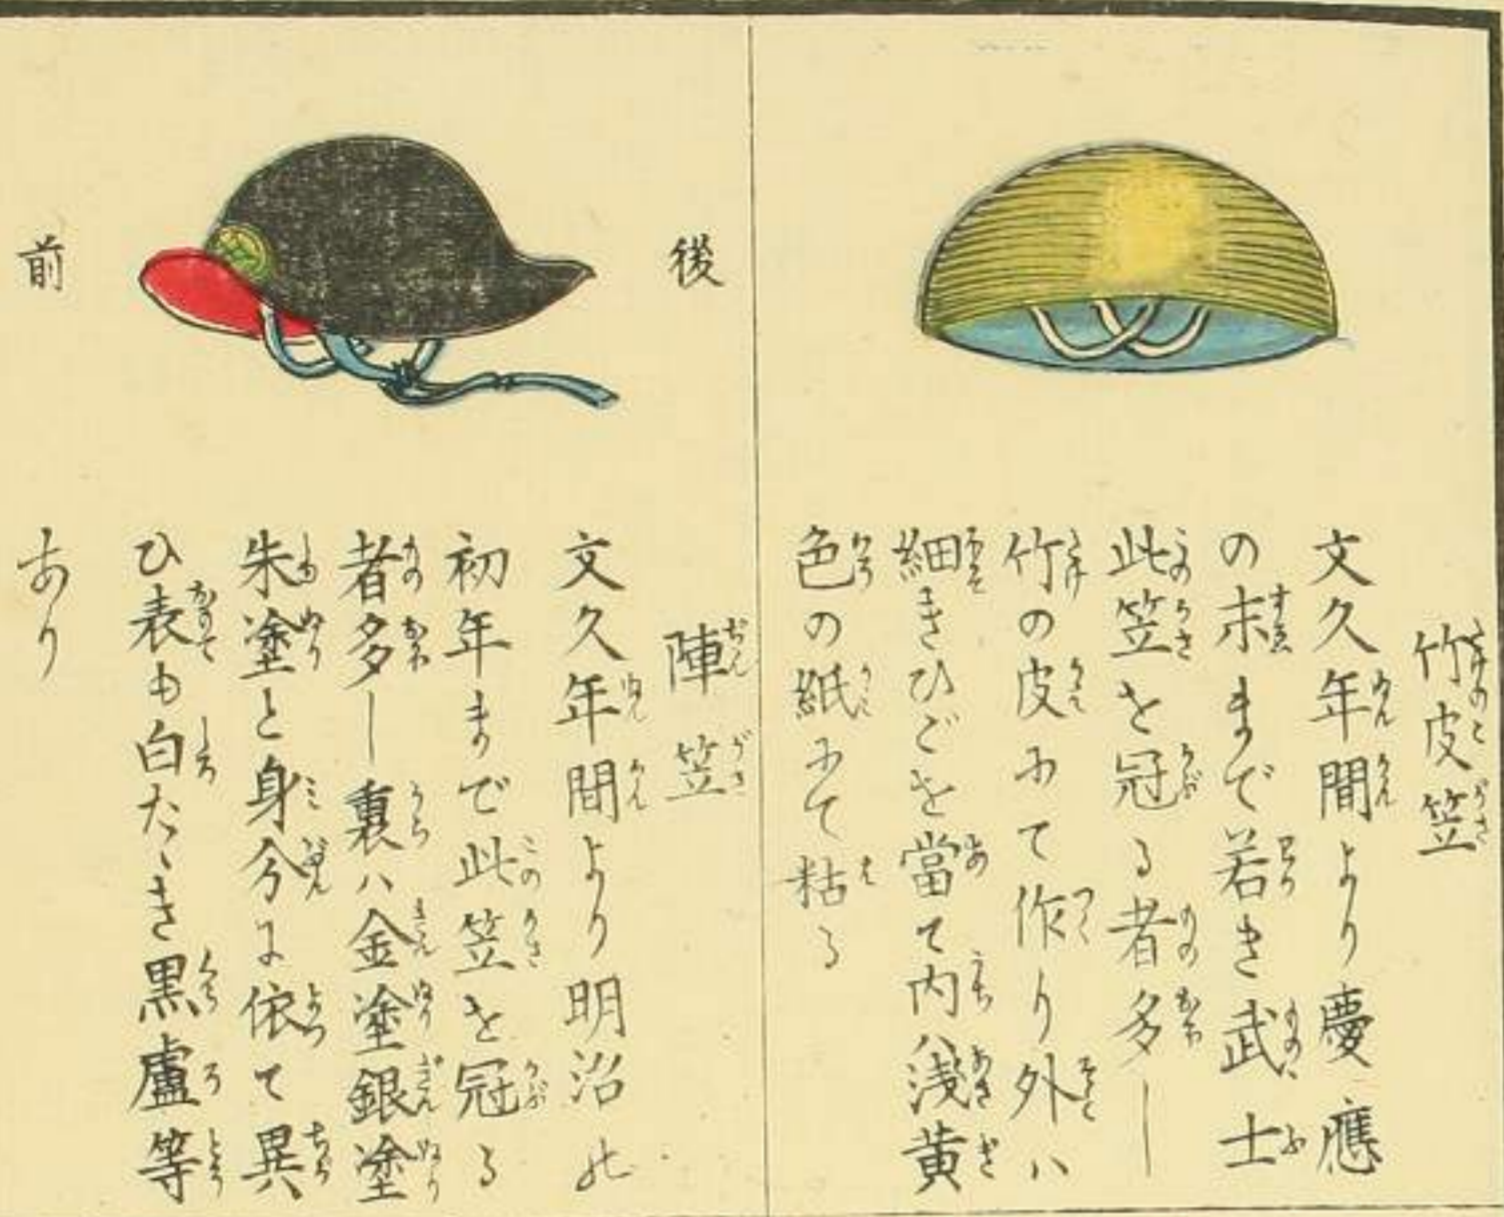 竹皮笠
文久年間より慶應
の末まで若き武士
此笠を冠る者多し
竹の皮にて作り外ハ
細きひごを當て内ハ浅黄
色の紙にて粘る
後
陣笠
文久年間より明治の
初年まで此笠を冠る
者多し裏ハ金塗銀塗
朱塗と身分に依て異
ひ表も白たゝき黒盧等
あり
前